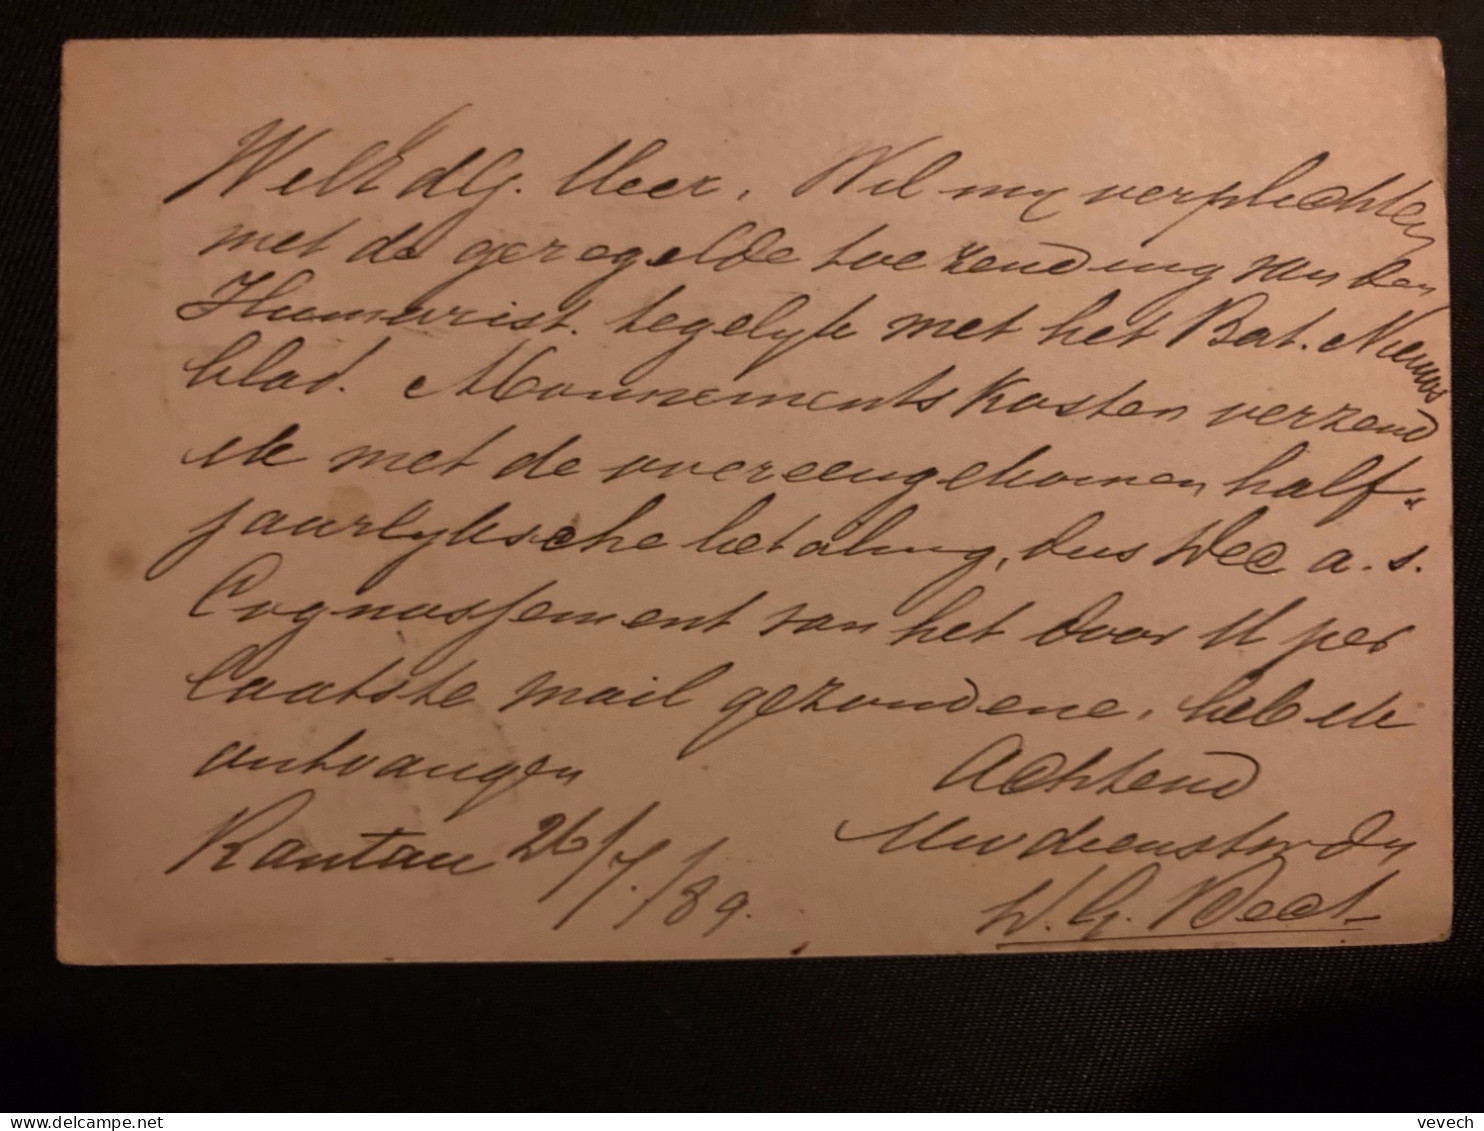 WelEdG. Heer, Wil my verplichten
met de geregelde toezending van den
Humorist. tegelyk met het Bat. Nieuws
blad. Abonnementskosten verzend
ik met de overeengekomen half-
jaarlyksche betaling, dus Dec a. s.
Cognossement van het door U per
laatste mail gezondene, heb ik
ontvangen
Achtend
Rantau 26/7./89.
Uw dienstw. dr
W. G.
vevech